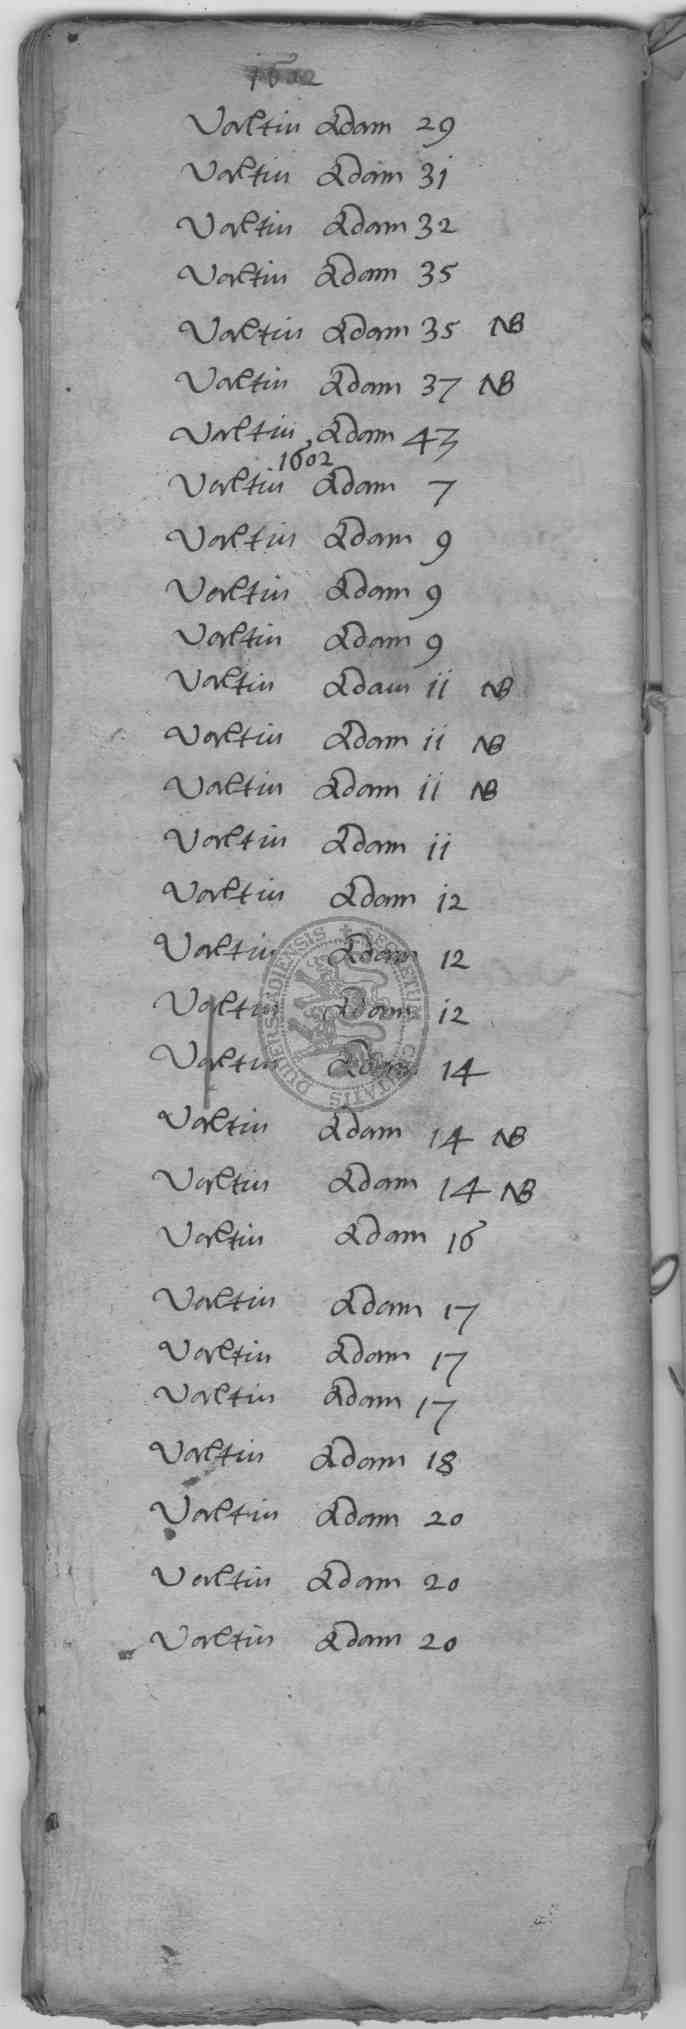 1602
Valtin Adam 29
Valtin Adam 31
Valtin Adam 32
Valtin Adam 35
Valtin Adam 35 NB
Valtin Adam 37 NB
Valtin Adam 43
1602
Valtin Adam 7
Valtin Adam 9
Valtin Adam 9
Valtin Adam 9
Valtin Adam 11 NB
Valtin Adam 11 NB
Valtin Adam 11 NB
Valtin Adam 11
Valtin Adam 12
Valtin Adam 12
Valtin Adam 12
Valtin Adam 14
Valtin Adam 14 NB
Valtin Adam 14 NB
Valtin Adam 16
Valtin Adam 17
Valtin Adam 17
Valtin Adam 17
Valtin Adam 18
Valtin Adam 20
Valtin Adam 20
Valtin Adam 20
SECRETUM CIVITATIS